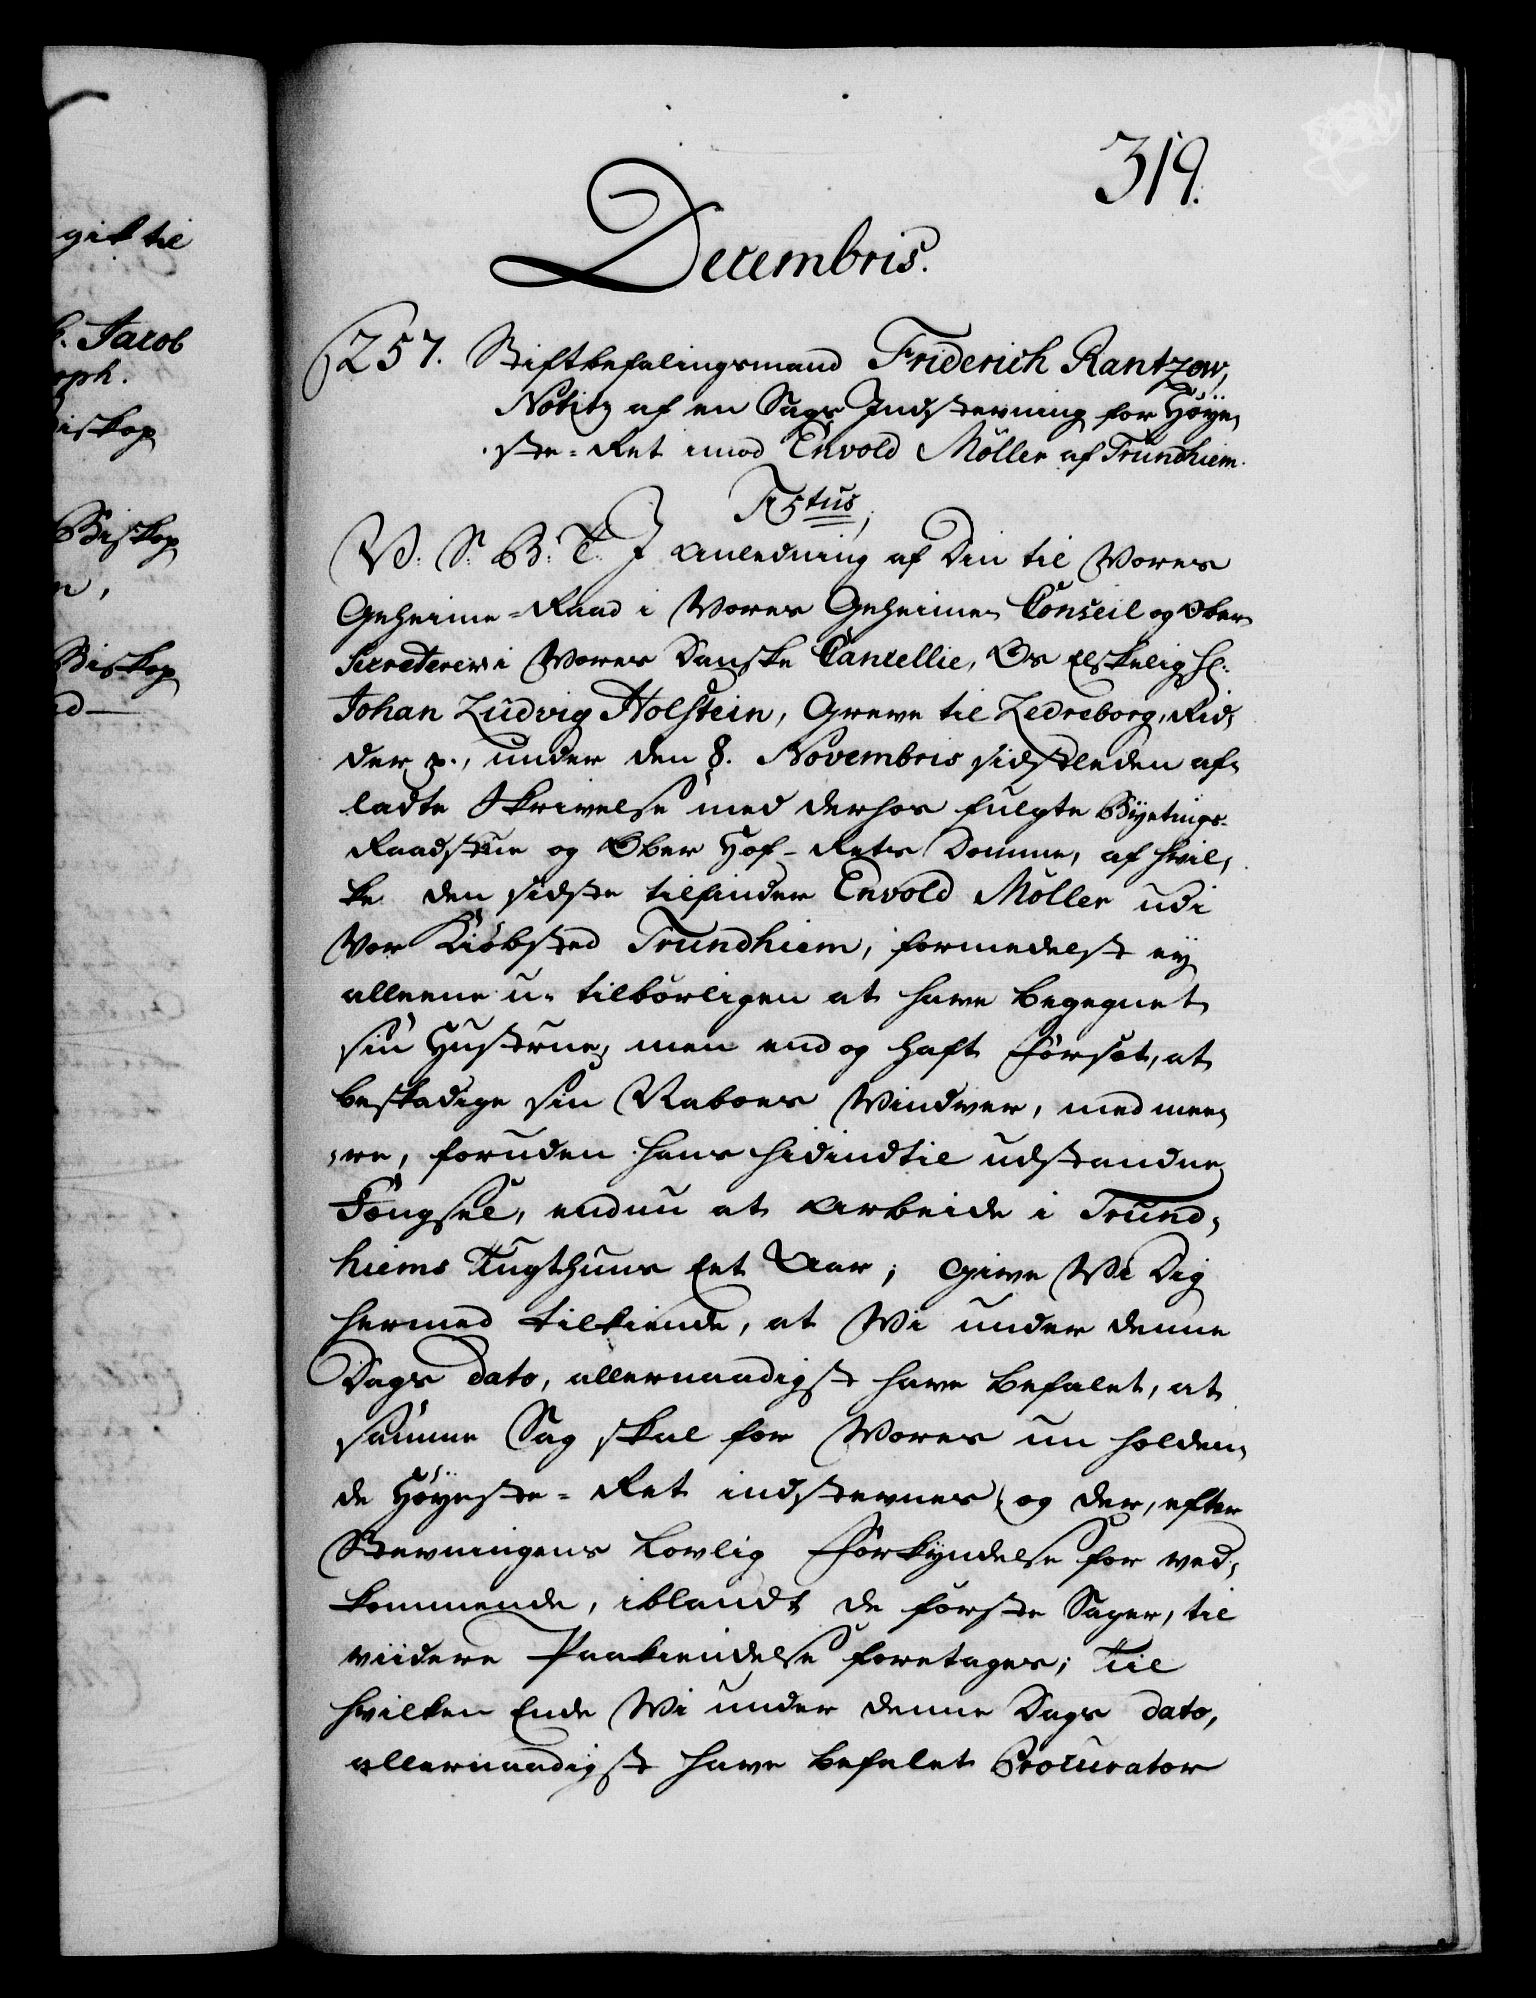 git til
Jacob
oph.
iskop
Biskop
n,
Biskop
d
319.
Decembris.
257. Stiftbefalingsmand Friderich Rantzow,
Notitz af en Sags Indstevning for Høye,
ste-Ret imod Envold Møller af Trundhiem.
F5tus,
V. S. G. T. I Anledning af Din til Vores
Geheime-Raad i Vores Geheime Conseil og Ober
Secreterer i Vores Danske Cancellie, Os Elskelig Hl.
Johan Ludvig Holstein, Greve til Ledreborg, Rid,
der p., under den 8. Novembris sidstleden af,
ladte Skrivelse med derhos fulgte Byetings-
Raadstue og Ober Hof-Rets Domme, af hvil,
ke den sidste tilfinder Envold Møller udi
Vor Kiøbsted Trundhiem, formedelst ey
alleene u-tilbørligen at have begegnet
sin Hustrue, men end og haft Forsæt, at
beskadige sin Naboes Vindver, med mee,
,re, foruden hans hidindtil udstandne
Fængsel, endnu at Arbeide i Trund,
hiems Tugthuus Eet Aar; Give Vi Dig
hermed tilkiende, at Vi under denne
Dags dato, allernaadigst have befalet, at
samme Sag skal for Vores nu holden,
de Høyeste-Ret indstevnes, og der, efter
Stevningens Lovlig Forkyndelse for ved,
kommende, iblandt de første Sager, til
viidere Paakiendelse foretages; Til
hvilken Ende Vi under denne Dags dato,
allernaadigst have befalet Procurator